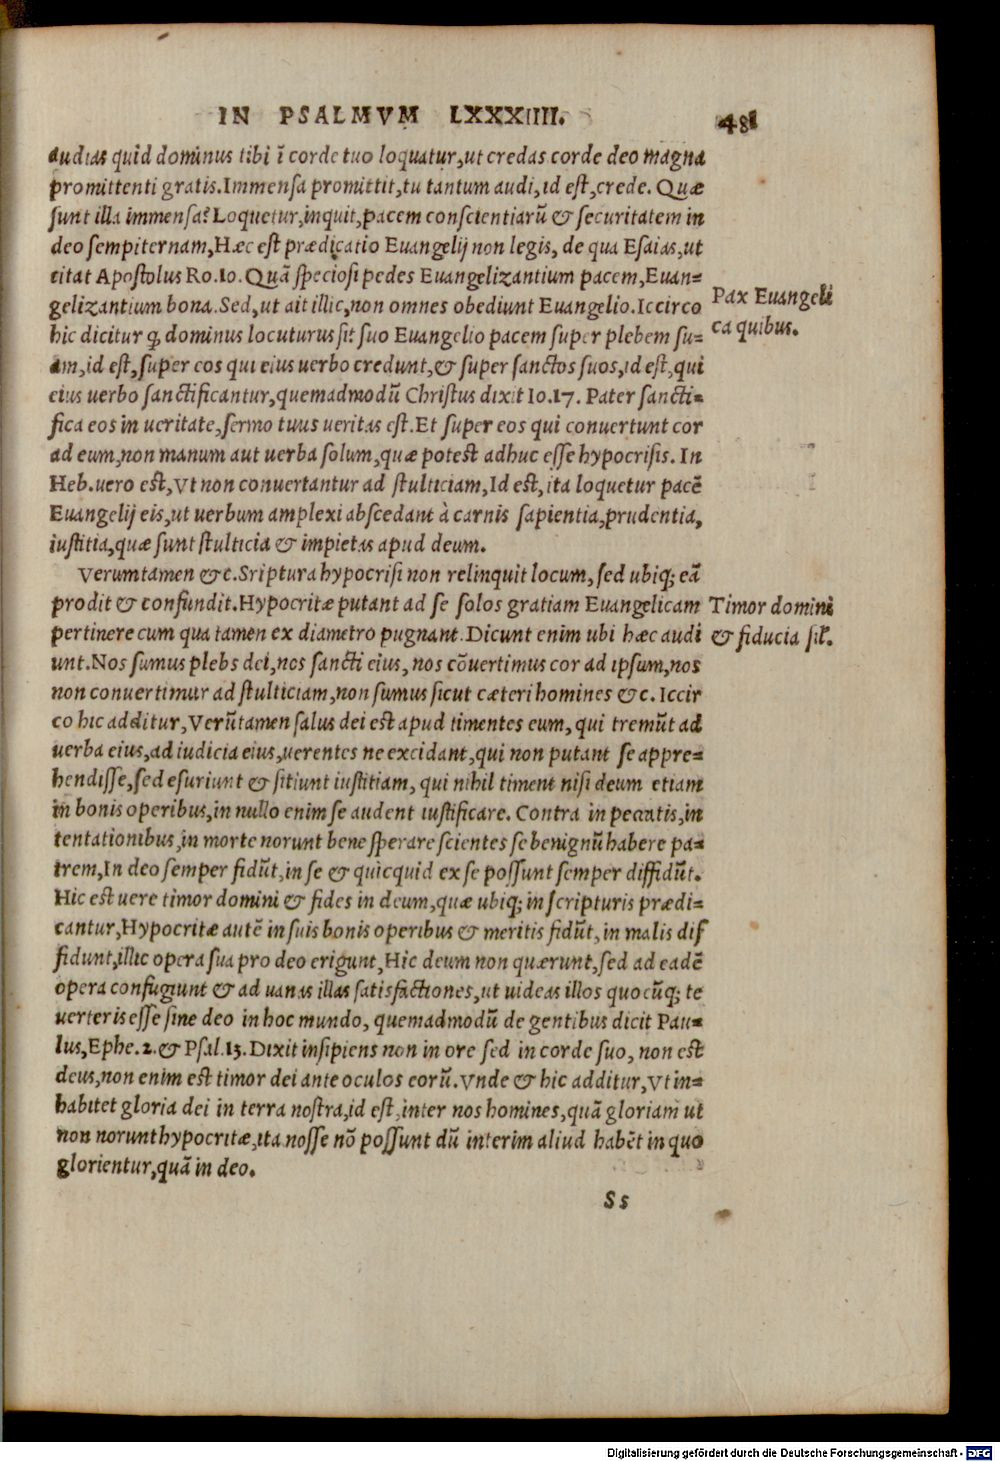 IN PSALMVM LXXXIIII. 481
audias quid dominus tibi ī corde tuo loquatur,ut credas corde deo magna
promittenti gratis.Immensa promittit,tu tantum audi,id est,crede. Quæ
sunt illa immensa? Loquetur,inquit,pacem conscientiarū & securitatem in
deo sempiternam,Hæc est prædicatio Euangelij non legis, de qua Esaias,ut
citat Apostolus Ro.10. Quā speciosi pedes Euangelizantium pacem,Euan=
gelizantium bona. Sed,ut ait illic,non omnes obediunt Euangelio.Iccirco
Pax Euangeli
ca quibus.
hic dicitur ꝙ dominus locuturus sit suo Euangelio pacem super plebem su=
am,id est,super eos qui eius uerbo credunt,& super sanctos suos,id est,qui
eius uerbo sanctificantur,quemadmodū Christus dixit Io.17. Pater sancti=
fica eos in ueritate,sermo tuus ueritas est.Et super eos qui conuertunt cor
ad eum,non manum aut uerba solum,quæ potest adhuc esse hypocrisis. In
Heb.uero est,Vt non conuertantur ad stulticiam,Id est,ita loquetur pacē
Euangelij eis,ut uerbum amplexi abscedant à carnis sapientia,prudentia,
iustitia,quæ sunt stulticia & impietas apud deum.
Verumtamen &c.Sriptura hypocrisi non relinquit locum,sed ubiq; eā
prodit & confundit.Hypocritæ putant ad se solos gratiam Euangelicam
Timor domini
& fiducia sil.
pertinere cum qua tamen ex diametro pugnant.Dicunt enim ubi hæc audi
unt.Nos sumus plebs dei,nos sancti eius, nos cōuertimus cor ad ipsum,nos
non conuertimur ad stulticiam,non sumus sicut cæteri homines &c. Iccir
co hic additur,Verūtamen salus dei est apud timentes eum, qui tremūt ad
uerba eius,ad iudicia eius,uerentes ne excidant,qui non putant se appre=
hendisse,sed esuriunt & sitiunt iustitiam, qui nihil timent nisi deum etiam
in bonis operibus,in nullo enim se audent iustificare. Contra in peccatis,in
tentationibus,in morte norunt bene sperare scientes se benignū habere pa=
trem,In deo semper fidūt,in se & quicquid ex se possunt semper diffidūt.
Hic est uere timor domini & fides in deum,quæ ubiq; in scripturis prædi=
cantur,Hypocritæ autē in suis bonis operibus & meritis fidūt,in malis dif
fidunt,illic opera sua pro deo erigunt,Hic deum non quærunt,sed ad eadē
opera confugiunt & ad uanas illas satisfactiones,ut uideas illos quocūq; te
uerteris esse sine deo in hoc mundo, quemadmodū de gentibus dicit Pau=
lus,Ephe.2.& Psal.13.Dixit insipiens non in ore sed in corde suo, non est
deus,non enim est timor dei ante oculos eorū.Vnde & hic additur,Vt in=
habitet gloria dei in terra nostra,id est,inter nos homines,quā gloriam ut
non norunt hypocritæ,ita nosse nō possunt dū interim aliud habēt in quo
glorientur,quā in deo.
Ss
Digitalisierung gefördert durch die Deutsche Forschungsgemeinschaft - DFG